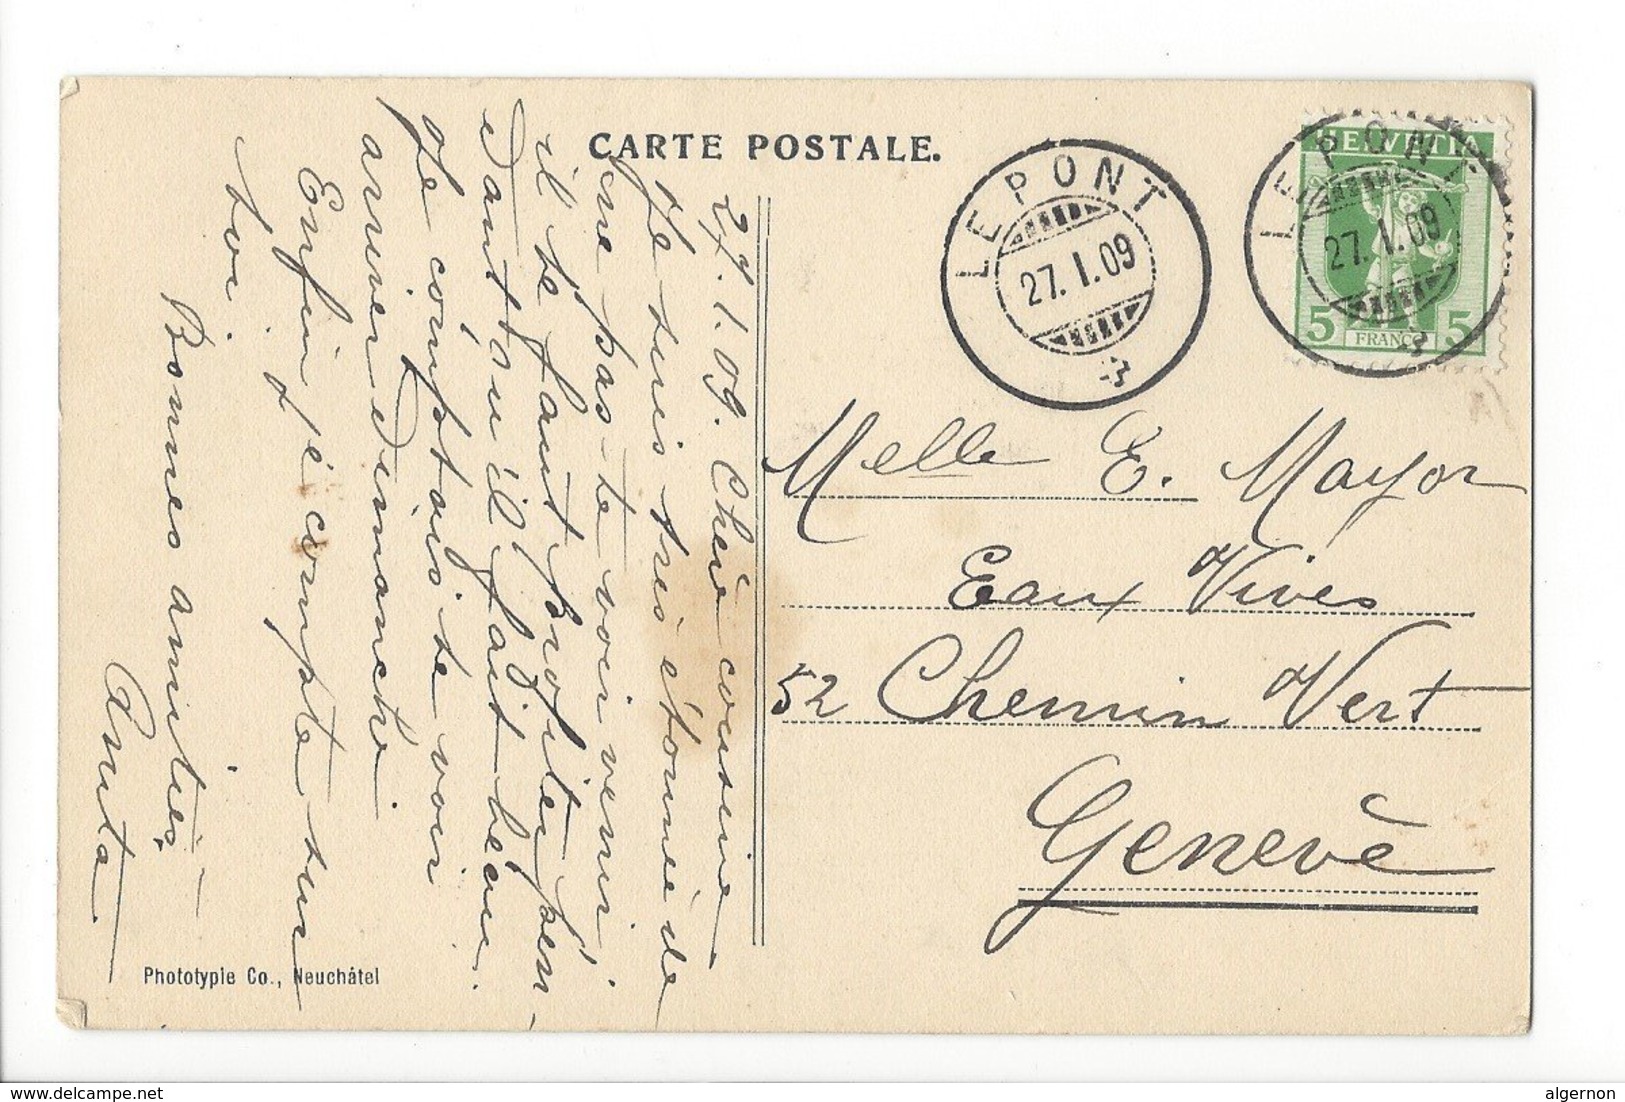 CARTE POSTALE.
LE PONT
27.I.09
LE PONT
27.I.09
HELVETIA
5 FRANCO 5
27.1.09. Chère cousine
Je suis très étonnée de
ne pas te voir venir,
il te faut profiter pen-
dant qu'il fait beau.
Je comptais te voir
arriver dimanche
Enfin j'y compte sur
toi.
Bonnes amitiés
Anita
Melle E. Mayor
Eaux Vives
52 Chemin Vert
Genève
Phototypie Co., Neuchâtel
delcampe.net
algernon